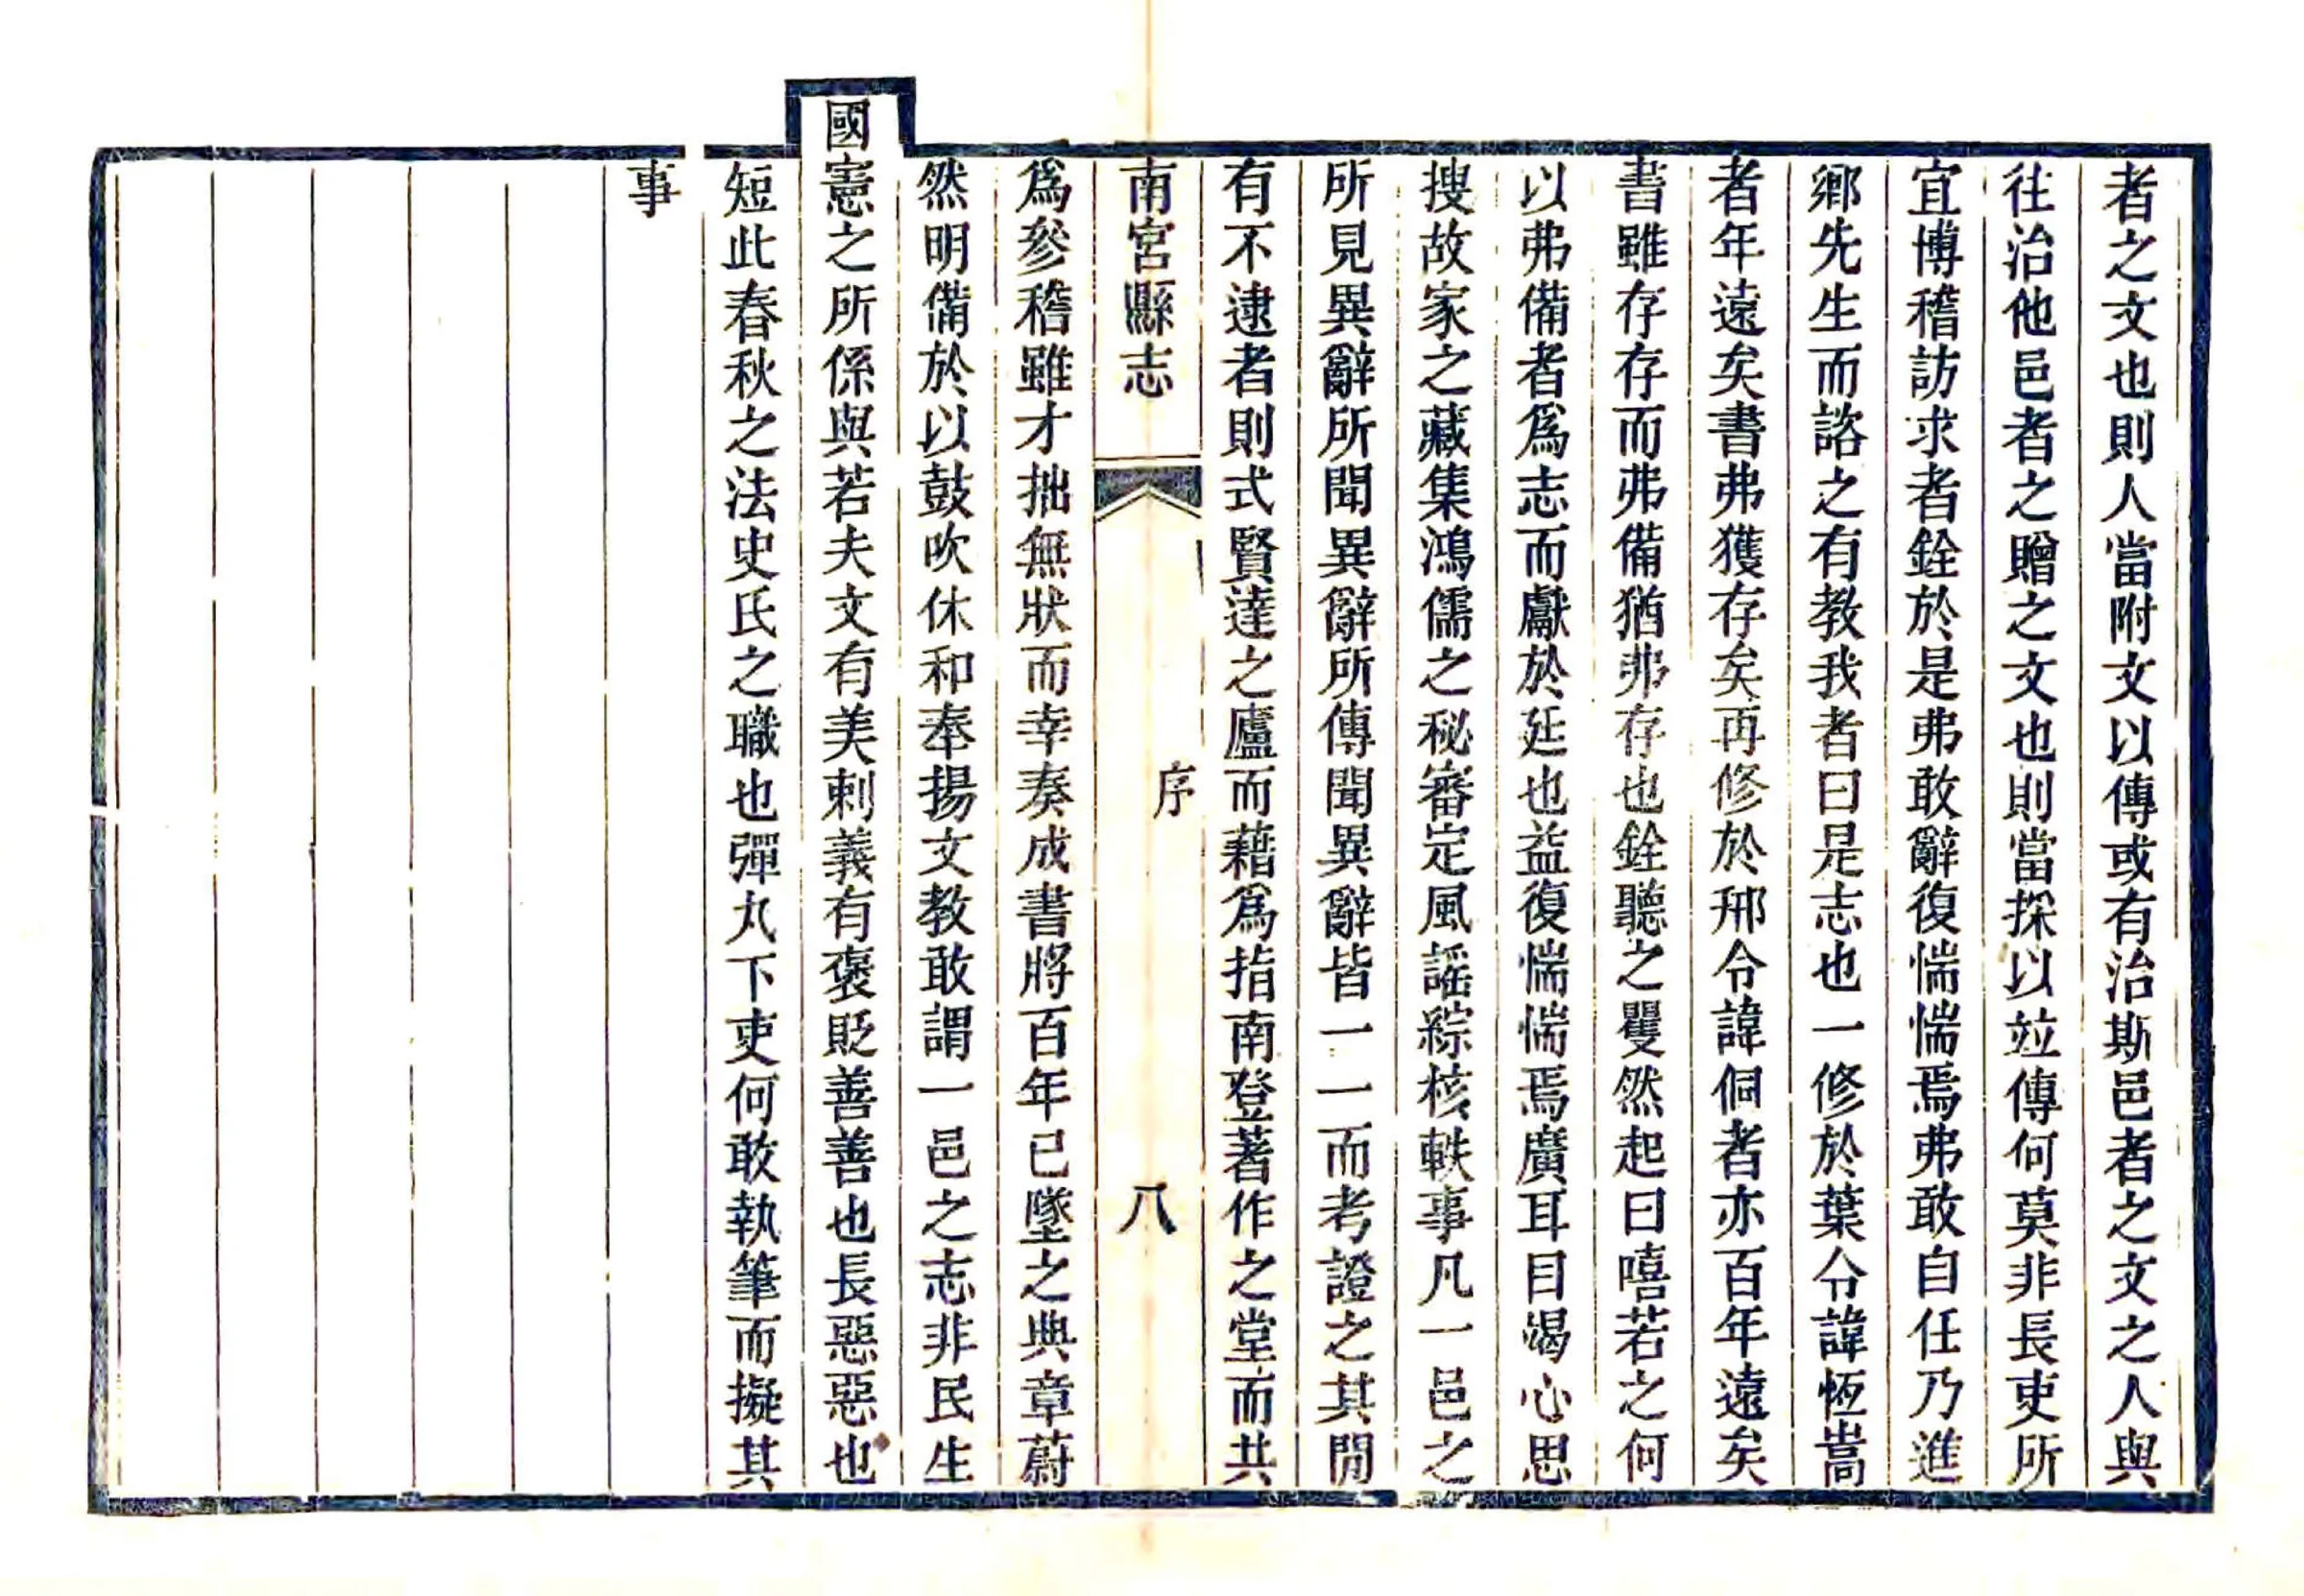 者之文也則人當附文以傳或有治斯邑者之文之人與
往治他邑者之贈之文也則當採以竝傳何莫非長吏所
宜博稽訪求者銓於是弗敢辭復惴惴焉弗敢自任乃進
鄉先生而諮之有教我者曰是志也一修於葉令諱恆嵩
者年遠矣書弗獲存矣再修於邢令諱侗者亦百年遠矣
書雖存存而弗備猶弗存也銓聽之瞿然起曰嘻若之何
以弗備者爲志而獻於廷也益復惴惴焉廣耳目竭心思
搜故家之藏集鴻儒之秘審定風謠綜核軼事凡一邑之
所見異辭所聞異辭所傳聞異辭皆一一而考證之其閒
有不逮者則式賢達之廬而藉爲指南登著作之堂而共
南宮縣志
序
八
爲參稽雖才拙無狀而幸奏成書將百年已墜之典章蔚
然明備於以鼓吹休和奉揚文教敢謂一邑之志非民生
國憲之所係與若夫文有美刺義有褒貶善善也長惡惡也
短此春秋之法史氏之職也彈丸下吏何敢執筆而擬其
事